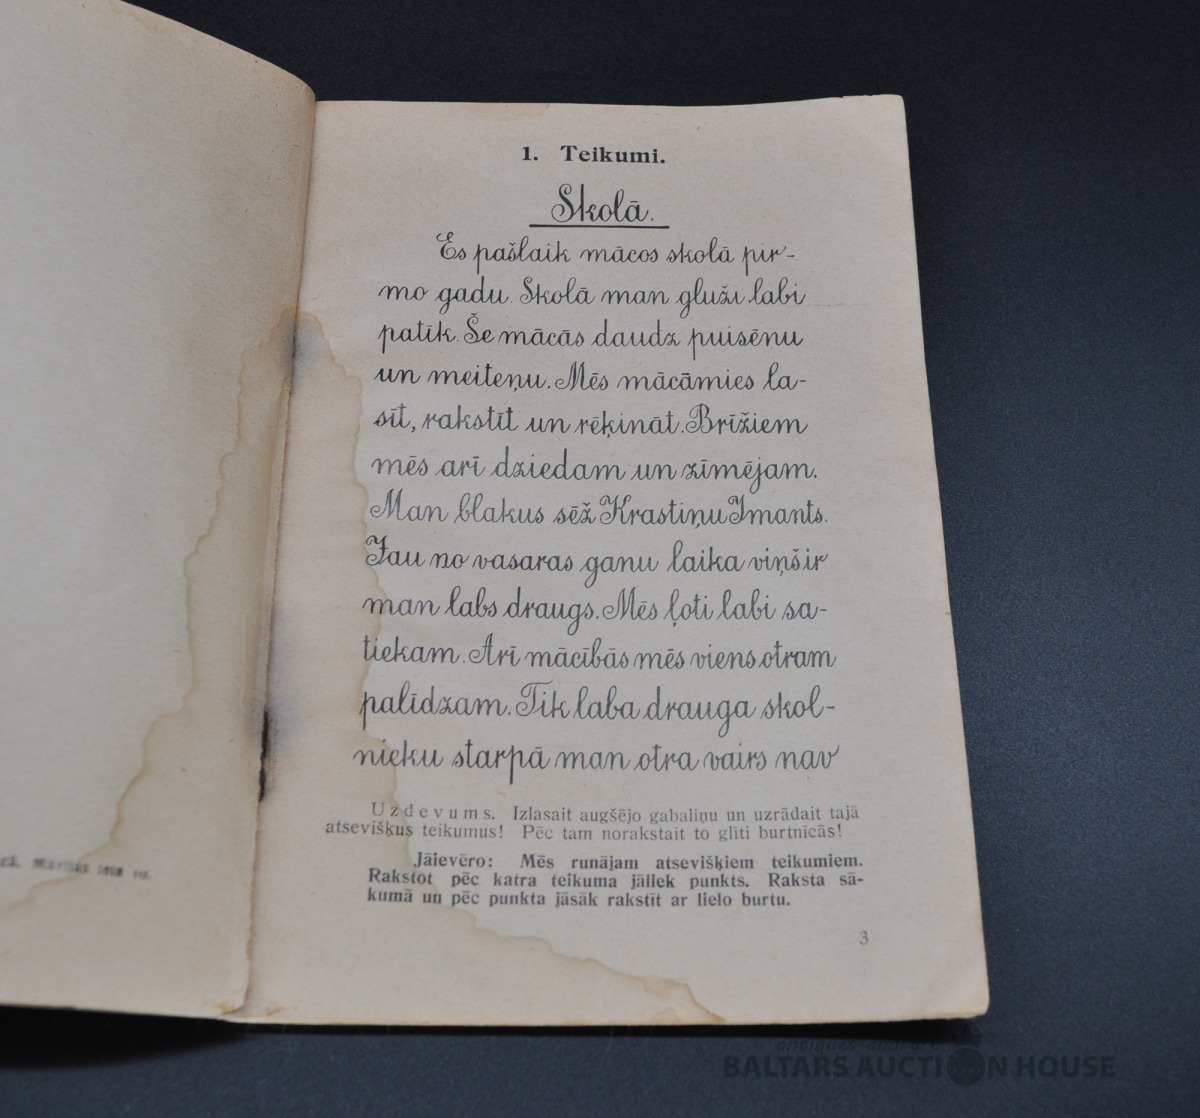 1. Teikumi.
Skolā.
Es pašlaik mācos skolā pir-
mo gadu. Skolā man gluži labi
patīk. Še mācās daudz puisēnu
un meiteņu. Mēs mācāmies la-
sīt, rakstīt un rēķināt. Brīžiem
mēs arī dziedam un zīmējam.
Man blakus sēž Krastiņu Imants.
Jau no vasaras ganu laika viņš ir
man labs draugs. Mēs ļoti labi sa-
tiekam. Arī mācībās mēs viens otram
palīdzam. Tik laba drauga skol-
nieku starpā man otra vairs nav
Uzdevums. Izlasait augšējo gabaliņu un uzrādait tajā
atsevišķus teikumus! Pēc tam norakstait to glīti burtnīcās!
Jāievēro: Mēs runājam atsevišķiem teikumiem.
Rakstot pēc katra teikuma jāliek punkts. Raksta sā-
kumā un pēc punkta jāsāk rakstīt ar lielo burtu.
3
BALTARS AUCTION HOUSE